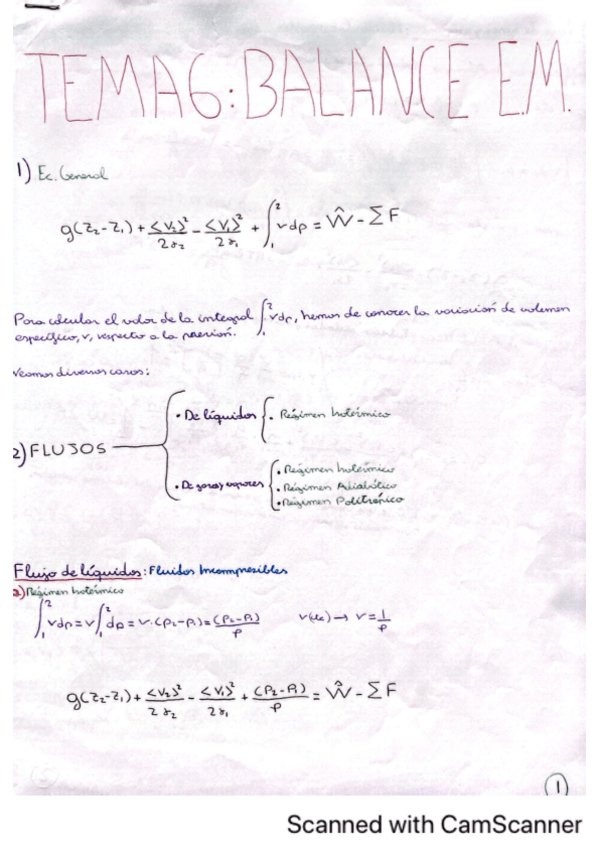 TEMA 6: BALANCE E.M.
1) Ec. General
g(z₂-z₁) + <v₂>²/2α₂ - <v₁>²/2α₁ + ∫₁² vdp = Ŵ - ΣF
Para calcular el valor de la integral ∫₁² vdp, hemos de conocer la variación de volumen
específico, v, respecto a la presión.
Veamos diversos casos:
2) FLUJOS
• De líquidos { • Régimen Isotérmico
• De gases y vapores { • Régimen Isotérmico
• Régimen Adiabático
• Régimen Politrópico
Flujo de líquidos: Fluidos Incompresibles
a) Régimen Isotérmico
∫₁² vdp = v∫₁² dp = v·(p₂-p₁) = (p₂-p₁)/ρ v(cte) → v = 1/ρ
g(z₂-z₁) + <v₂>²/2α₂ - <v₁>²/2α₁ + (p₂-p₁)/ρ = Ŵ - ΣF
1
Scanned with CamScanner